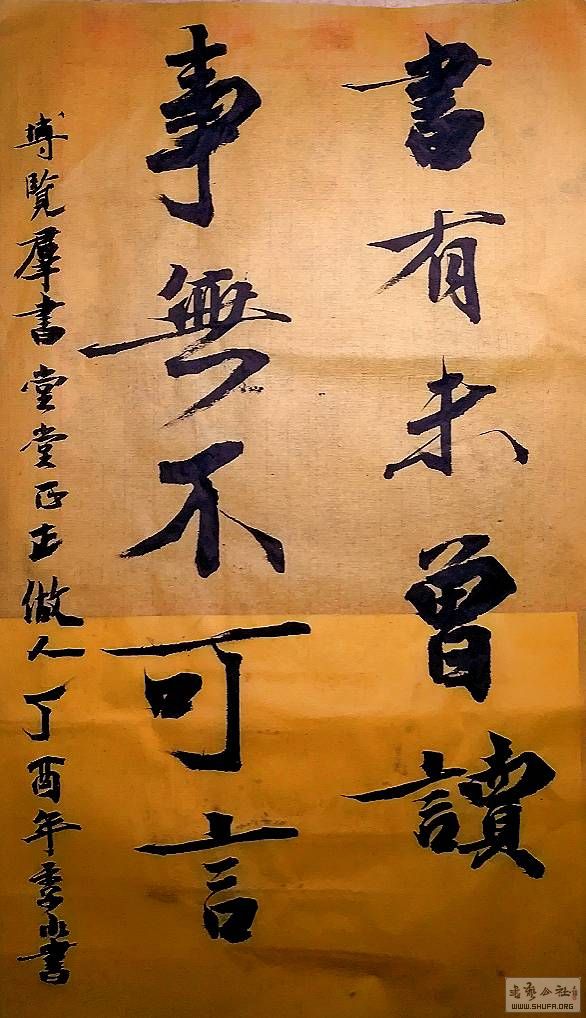 書有未曾讀
事無不可言
博覽羣書堂堂正正做人丁酉年季書
WWW.SHUFA.ORG